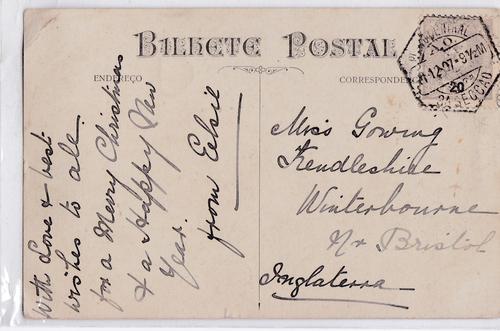 BILHETE POSTAL
ENDEREÇO
CORRESPONDE
With Love & best
wishes to all
for a Merry Christmas
& a Happy New
Year.
from Elsie
Miss Gowing
Kendleshire
Winterbourne
Nr Bristol
Inglaterra
CENTRAL
12-07-8½M
20
2ª SECÇÃO